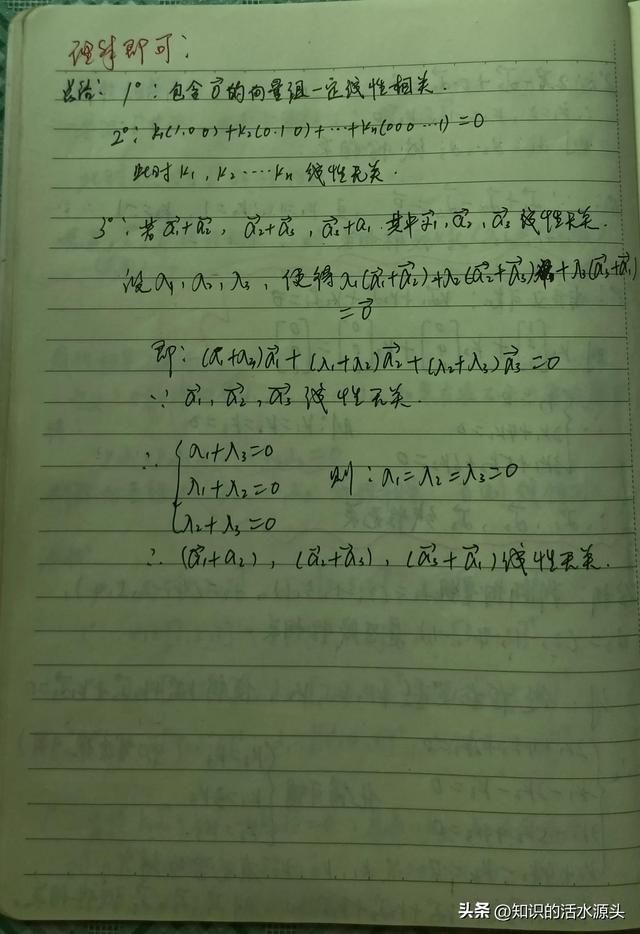 理解即可:
总结: 1°: 包含 0⃗ 的向量组一定线性相关.
2°: k₁(1,0 0)+k₂(0.1 0)+…+kₙ(0 0 0 … 1)=0
此时 k₁, k₂ ⋯⋯ kₙ 线性无关.
3°: 若 α⃗₁+α⃗₂, α⃗₂+α⃗₃, α⃗₃+α₁. 其中 α⃗₁, α⃗₂, α⃗₃ 线性无关.
设 λ₁, λ₂, λ₃, 使得 λ₁(α⃗₁+α⃗₂)+λ₂(α⃗₂+α⃗₃)+λ₃(α⃗₃+α⃗₁)
=0⃗
即: (λ₁+λ₃)α⃗₁+(λ₁+λ₂)α⃗₂+(λ₂+λ₃)α⃗₃=0
∵ α⃗₁, α⃗₂, α⃗₃ 线性无关.
∴ { λ₁+λ₃=0
λ₁+λ₂=0 则: λ₁=λ₂=λ₃=0
λ₂+λ₃=0
∴ (α⃗₁+α₂), (α⃗₂+α⃗₃), (α⃗₃+α⃗₁) 线性无关.
头条 @知识的活水源头